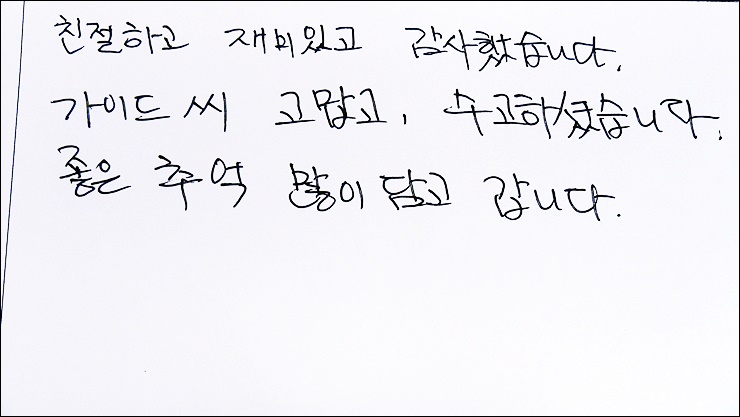 친절하고 재미있고 감사했습니다.
가이드 씨 고맙고, 수고하셨습니다.
좋은 추억 많이 담고 갑니다.